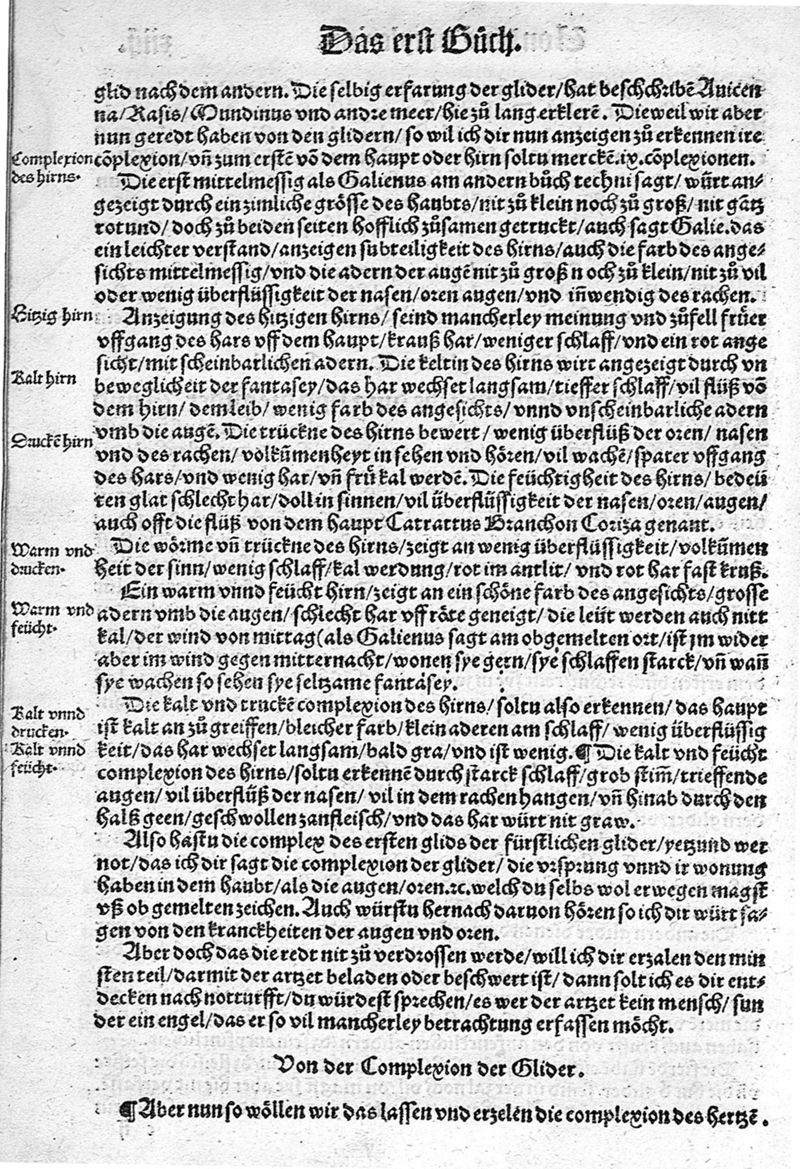 Das erst Bůch.
glid nach dem andern. Die selbig erfarung der glider/hat beschchribē Auicen
na/Rasis/Mundinus vnd andre meer/hie zů lang erklerē. Dieweil wir aber
nun geredt haben von den glidern/so wil ich dir nun anzeigen zů erkennen ire
Complexion
des hirns.
cōplexion/vñ zum erstē vō dem haupt oder hirn soltu merckē.ix.cōplexionen.
Die erst mittelmessig als Galienus am andern bůch techni sagt/würt an-
gezeigt durch ein zimliche grösse des haubts/nit zů klein noch zů groß/nit gātz
rot und/doch zů beiden seiten hofflich zůsamen getruckt/auch sagt Galie.das
ein leichter verstand/anzeigen subteiligkeit des hirns/auch die farb des ange-
sichts mittelmessig/vnd die adern der augē nit zů groß noch zů klein/nit zů vil
oder wenig überflüssigkeit der nasen/oren augen/vnd iñwendig des rachen.
Hitzig hirn
Anzeigung des hitzigen hirns/seind mancherley meinung vnd zůfell früer
vffgang des hars vff dem haupt/krauß har/weniger schlaff/vnd ein rot ange
sicht/mit scheinbarlichen adern. Die keltin des hirns wirt angezeigt durch vn
Kalt hirn
beweglicheit der fantasey/das har wechset langsam/tieffer schlaff/vil flüß vō
dem hirn/dem leib/wenig farb des angesichts/vnnd vnscheinbarliche adern
Druckē hirn
vmb die augē. Die trückne des hirns bewert/wenig überflüß der oren/nasen
vnd des rachen/volkůmenheyt in sehen vnd hören/vil wachē/spater vffgang
des hars/vnd wenig har/vñ frü kal werdē. Die feüchtigheit des hirns/bedeü
ten glat schlecht har/doll in sinnen/vil überflüssigkeit der nasen/oren/augen/
auch offt die flüß von dem haupt Catrattus Branchon Coriza genant.
Warm vnd
drucken.
Die wörme vñ trückne des hirns/zeigt an wenig überflüssigkeit/volkůmen
heit der sinn/wenig schlaff/kal werdung/rot im antlit/vnd rot har fast kruß.
Ein warm vnnd feücht hirn/zeigt an ein schöne farb des angesichts/grosse
Warm vnd
feücht.
adern vmb die augen/schlecht har vff röte geneigt/die leüt werden auch nitt
kal/der wind von mittag(als Galienus sagt am obgemelten ort/ist jm wider
aber im wind gegen mitternacht/wonen sye gern/sye schlaffen starck/vñ wañ
sye wachen so sehen sye seltzame fantasey.
Kalt vnnd
drucken.
Die kalt vnd truckē complexion des hirns/soltu also erkennen/das haupt
ist kalt an zů greiffen/bleicher farb/klein aderen am schlaff/wenig überflüssig
Kalt vnnd
feücht.
keit/das har wechset langsam/bald gra/vnd ist wenig.¶Die kalt vnd feücht
complexion des hirns/soltu erkennē durch starck schlaff/grob stim̄/trieffende
augen/vil überflüß der nasen/vil in dem rachen hangen/vñ hinab durch den
halß geen/geschwollen zanfleisch/vnd das har würt nit graw.
Also hastu die complex des ersten glids der fürstlichen glider/yetzund wer
not/das ich dir sagt die complexion der glider/die vrsprung vnnd ir wonung
haben in dem haubt/als die augen/oren.ꝛc.welch du selbs wol erwegen magst
vß ob gemelten zeichen. Auch würstu hernach daruon hören so ich dir würt sa-
gen von den kranckheiten der augen vnd oren.
Aber doch das die redt nit zů verdrossen werde/will ich dir erzalen den min
sten teil/darmit der artzet beladen oder beschwert ist/dann solt ich es dir ent-
decken nach notturfft/du würdest sprechen/es wer der artzet kein mensch/sun
der ein engel/das er so vil mancherley betrachtung erfassen möcht.
Von der Complexion der Glider.
¶Aber nun so wöllen wir das lassen vnd erzelen die complexion des hertzē.